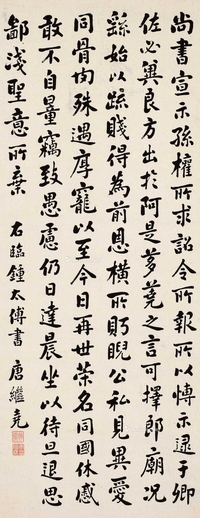 尚書宣示孫權所求詔令所報所以博示逮于卿
佐必冀良方出於阿是芻蕘之言可擇郎廟況
繇始以踈賤得為前恩橫所眄睨公私見異愛
同骨肉殊遇厚寵以至今日再世榮名同國休慼
敢不自量竊致愚慮仍日達晨坐以待旦退思
鄙淺聖意所棄 右臨鍾太傅書 唐繼堯